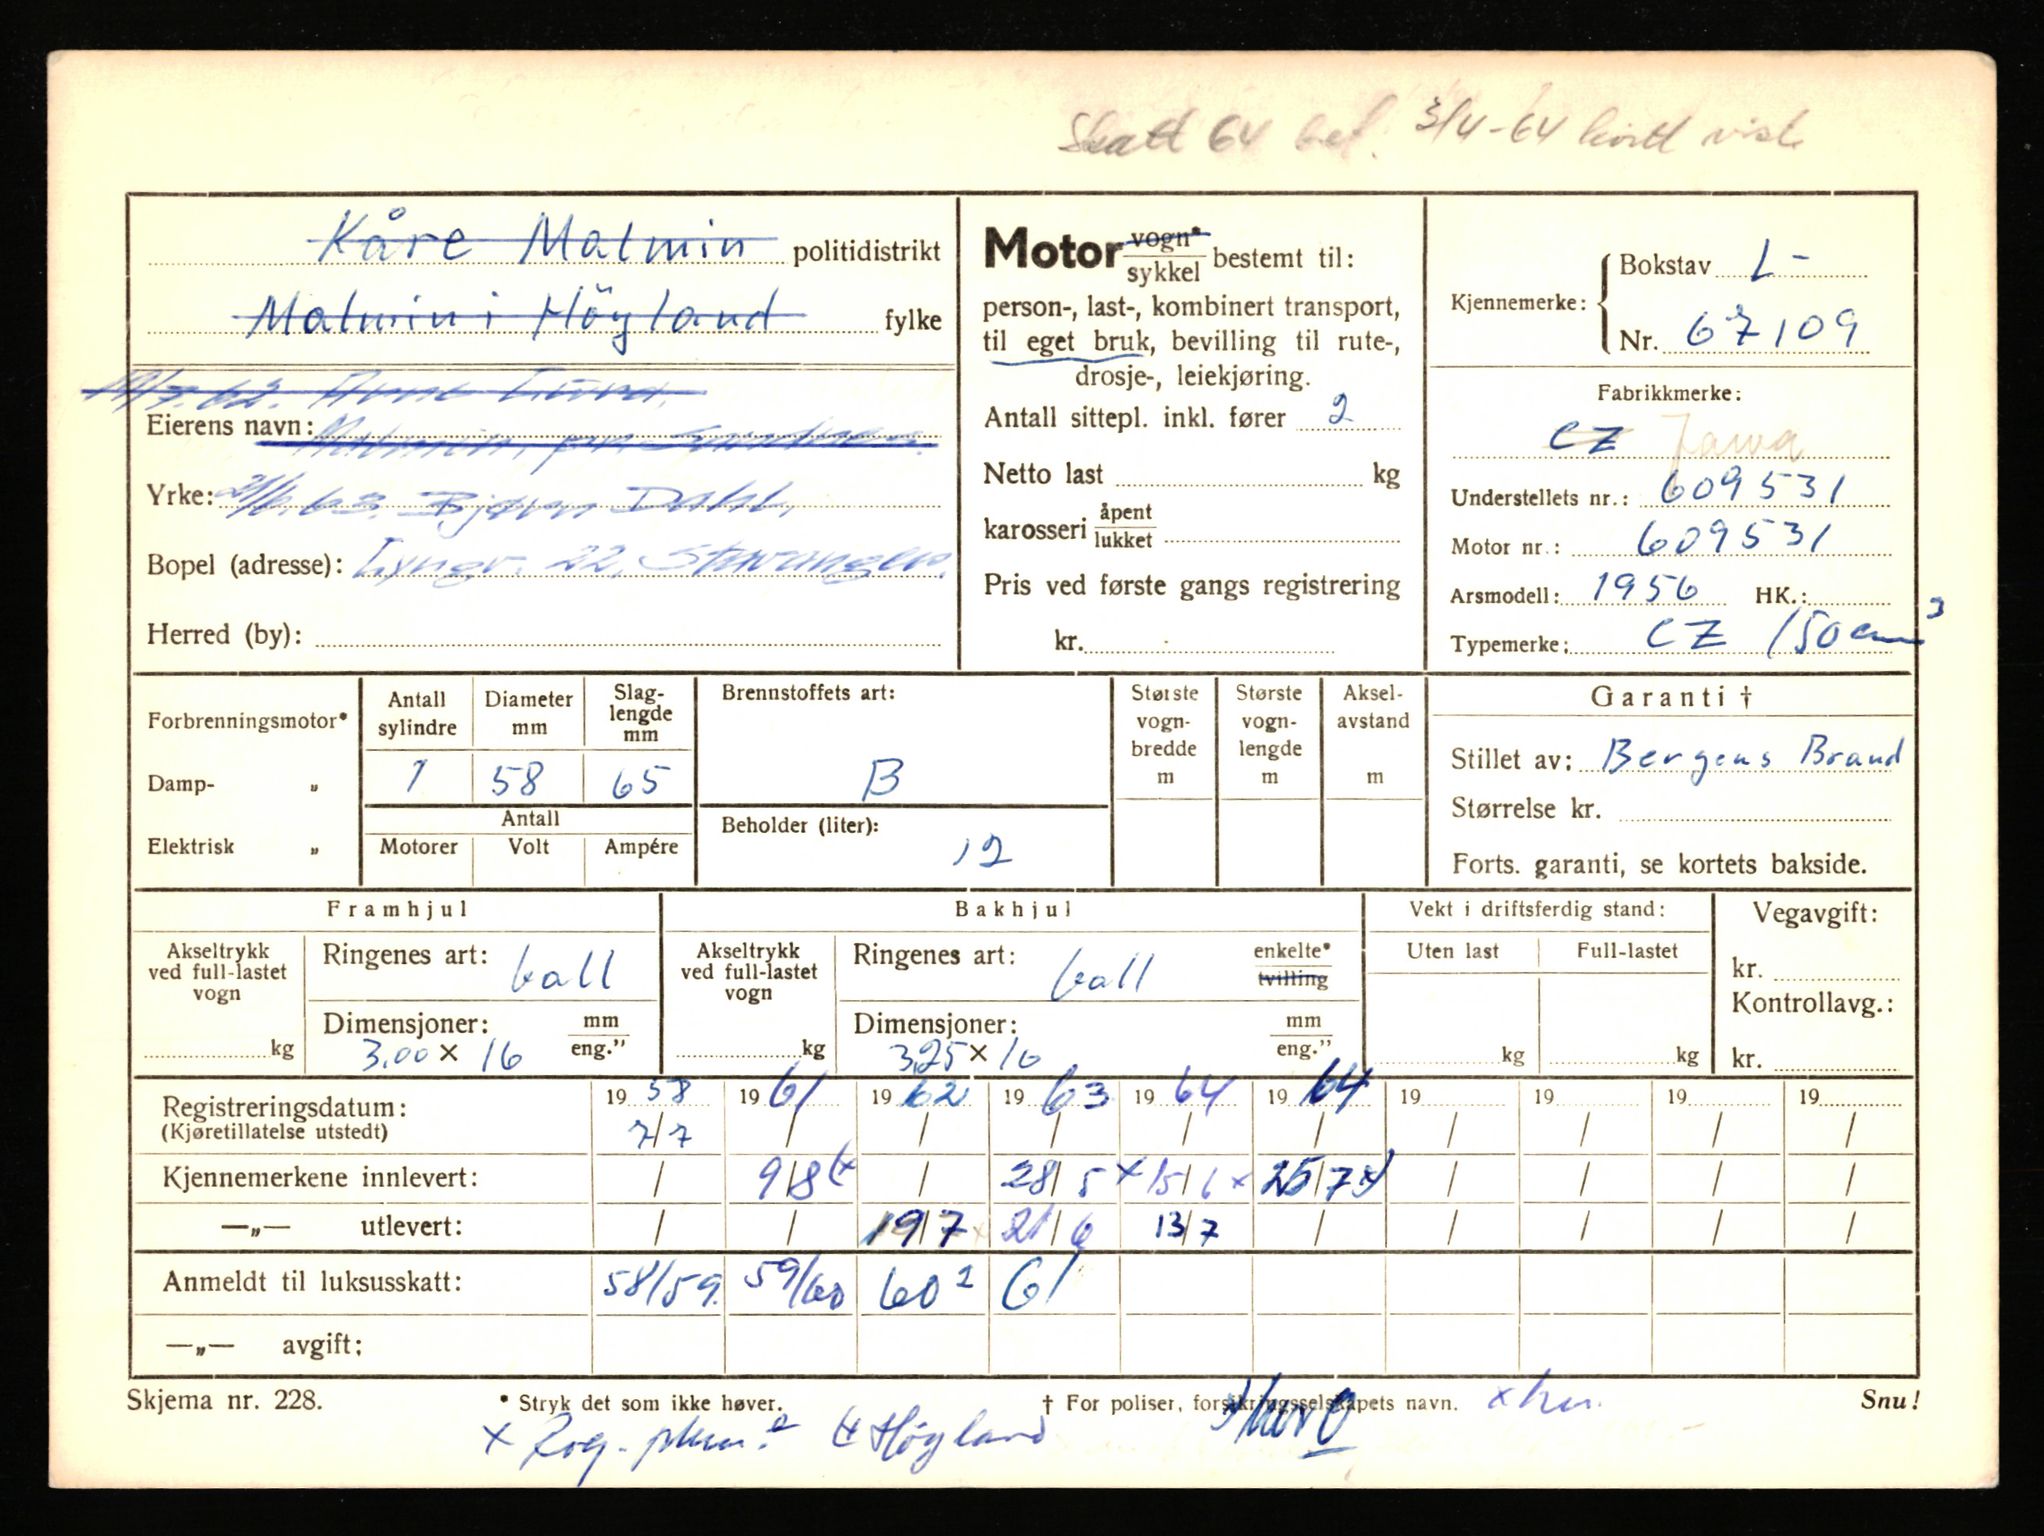 Skatt 64 bet. 3/4-64 kvitt vist
Kåre Malmin politidistrikt
Malmin i Höyland fylke
Eierens navn:
Yrke: 21/6.63. Bjørn Dahl,
Bopel (adresse): Lyngv. 22, Stavanger.
Herred (by):
Motor vogn* / sykkel bestemt til:
person-, last-, kombinert transport,
til eget bruk, bevilling til rute-,
drosje-, leiekjøring.
Antall sittepl. inkl. fører 2
Netto last kg
karosseri åpent / lukket
Pris ved første gangs registrering
kr.
Kjennemerke: Bokstav L-
Nr. 67109
Fabrikkmerke:
CZ Jawa
Understellets nr.: 609531
Motor nr.: 609531
Arsmodell: 1956 HK.:
Typemerke: CZ 150 cm³
Forbrenningsmotor*
Damp- „
Elektrisk „
Antall sylindre Diameter mm Slag-lengde mm
1 58 65
Antall
Motorer Volt Ampére
Brennstoffets art:
B
Beholder (liter):
12
Største vogn-bredde m
Største vogn-lengde m
Aksel-avstand m
Garanti †
Stillet av: Bergens Brand
Størrelse kr.
Forts. garanti, se kortets bakside.
Framhjul
Akseltrykk ved full-lastet vogn kg
Ringenes art: ball
Dimensjoner: mm / eng."
3.00 × 16
Bakhjul
Akseltrykk ved full-lastet vogn kg
Ringenes art: ball enkelte* / tvilling
Dimensjoner: mm / eng."
3,25 × 16
Vekt i driftsferdig stand:
Uten last Full-lastet
kg kg
Vegavgift:
kr.
Kontrollavg.:
kr.
Registreringsdatum: 19 58 19 61 19 62 19 63 19 64 19 64 19 19 19 19
(Kjøretillatelse utstedt) 7/7 / / / / / / / / /
Kjennemerkene innlevert: / 9/8 (x / 28/5 x 15/6 x 25/7 x) / / / /
—„— utlevert: / / 19/7 21/6 13/7 / / / / /
Anmeldt til luksusskatt: 58/59. 59/60 60² 61
—„— avgift:
Skjema nr. 228. * Stryk det som ikke høver. † For poliser, forsikringsselskapets navn. Snu!
x Høyland